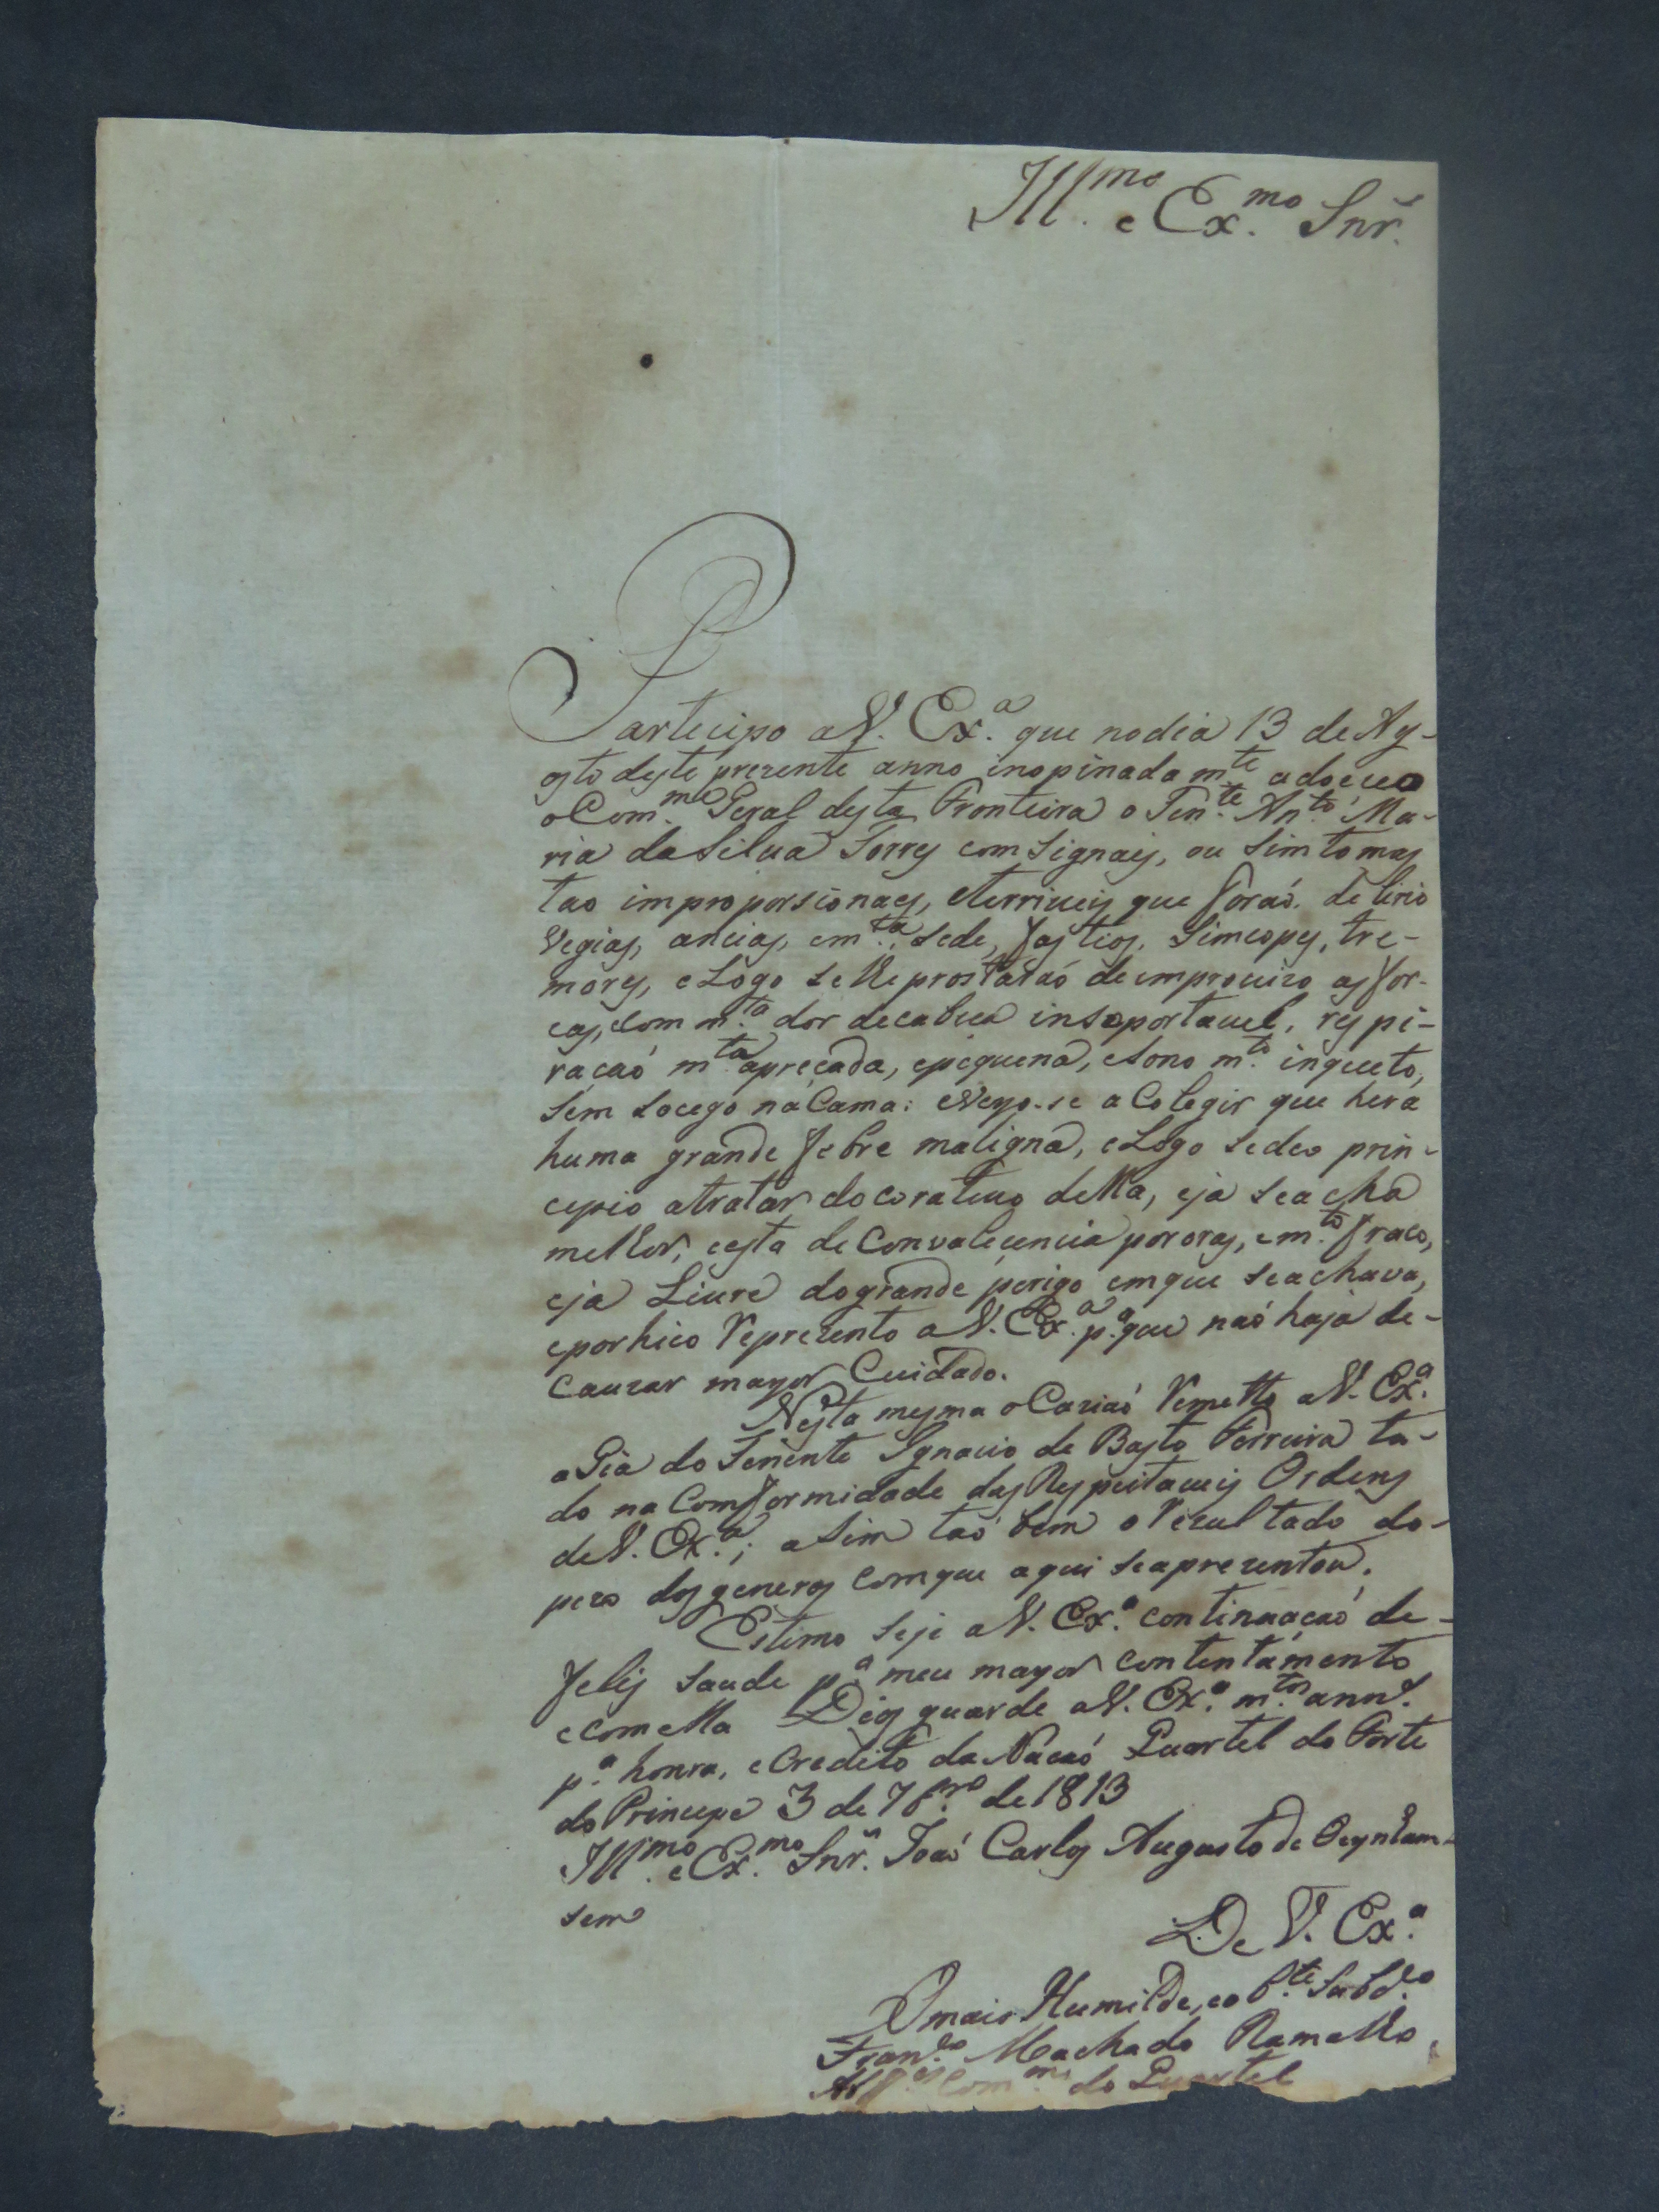 Ill.mo e Ex.mo Snr.
Partecipo a V. Ex.a que no dia 13 de Ag-
osto deste prezente anno inopinadam.te adoeceo
o Com.me Geral desta Fronteira o Ten.te An.to Ma-
ria da Silua Torres com Signaes, ou Simtomas
tao improporsionaes, eterriueis que foraó, delirio
vegias, ancias, em.ta sede, fastios, Simcopes, tre-
mores, eLogo selhe prostáraó deimprouizo as for-
cas, com m.ta dor decabeca insoportauel, respi-
racaó m.ta apreçada, epequena, eSono m.to inqueto,
Sem Socego naCama: eVeyo-se a Colegir que hera
huma grande febre maligna, eLogo sedeo prin-
cepio atratar do corateuo della, eja seacha
melhor, eesta de Convalecencia por oras, em.to fraco,
eja Liure dogrande perigo emque seachava,
eporhico Reprezento a V. Ex.a p.a que naó haja de-
Cauzar mayor Cuidado.
Nesta mesma oCaziaó Remetto a V. Ex.a
a Gia do Tenente Ignacio de Basto Ferreira tu-
do na Comformidade das Respeitaueis Ordens
de V. Ex.a; aSim taó bem o Rezultado do-
pezo dos generos Comque aqui seaprezentou.
Estimo Seje a V. Ex.a continuacaó de-
felis Saude p.a meu mayor contentamento
ecomella Deos guarde a V. Ex.a m.tos ann.s
p.a honra, eCredito da Nacaó Quartel do Forte
do Princepe 3 de 7br.o de 1813
Ill.mo e Ex.mo Snr. Joaó Carlos Augusto de Oeynham-
sem
De V. Ex.a
O mais Humilde, eob.te Subd.o
Fran.co Machado Ramalho
Alf.es Com.me do Quartel